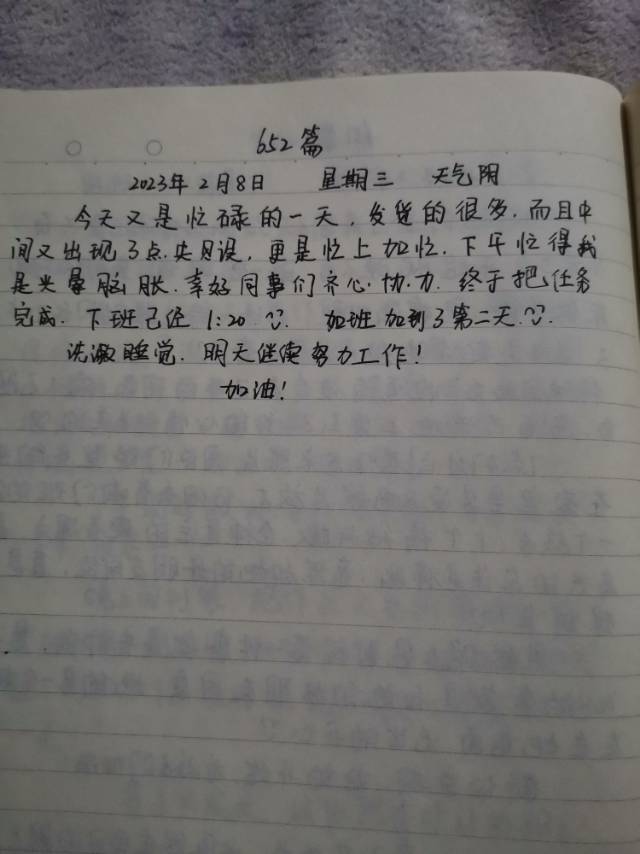 652篇
2023年2月8日 星期三 天气阴
今天又是忙碌的一天,发货的很多.而且中
间又出现了点.失误,更是忙上加忙.下午忙得我
是头晕脑胀.幸好同事们齐心.协.力.终于把任务
完成.下班已经1:20 加班加到了第二天.
洗漱睡觉.明天继续努力工作!
加油!